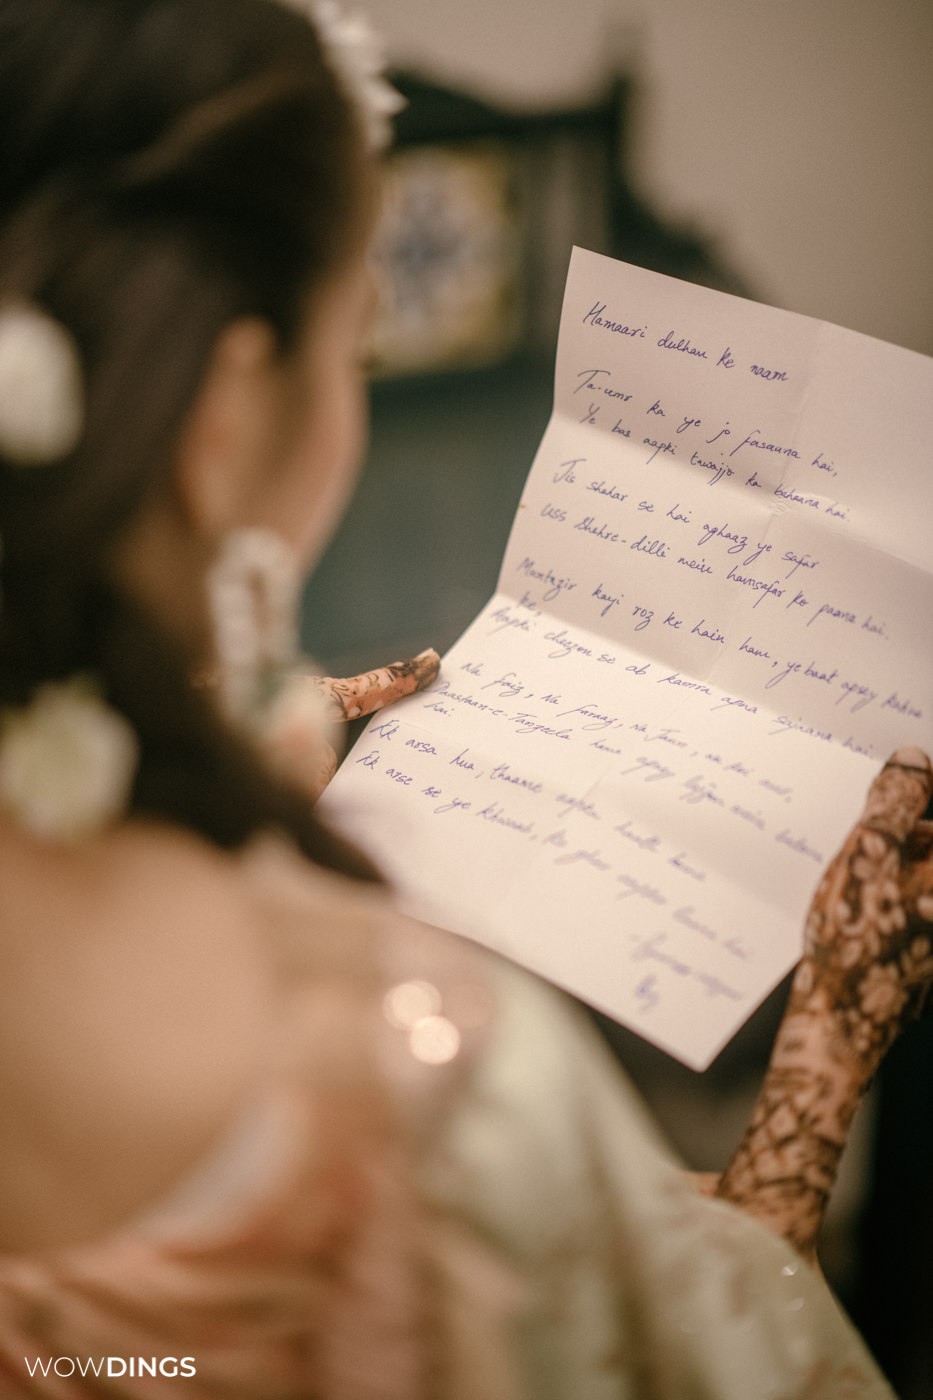 Hamaari dulhan ke naam
Ta-umr ka ye jo fasaana hai,
Ye bas aapki tawajjo ka bahaana hai.
Jis shehar se hai aghaaz ye safar
Uss Shehre-dilli mein hamsafar ko paana hai.
Muntazir kayi roz ke hain hum, ye baat apsey kehna
hai.
Aapki cheezon se ab kamra apna sajaana hai.
Na Faiz, Na Faraz, Na Jaun, na koi
Daastan-e- hume apsey mein
hai.
Ek arsa hua, thaame aapka haath
Ek arse se ye khwaab, ke ghar aapko laana hai
WOWDINGS